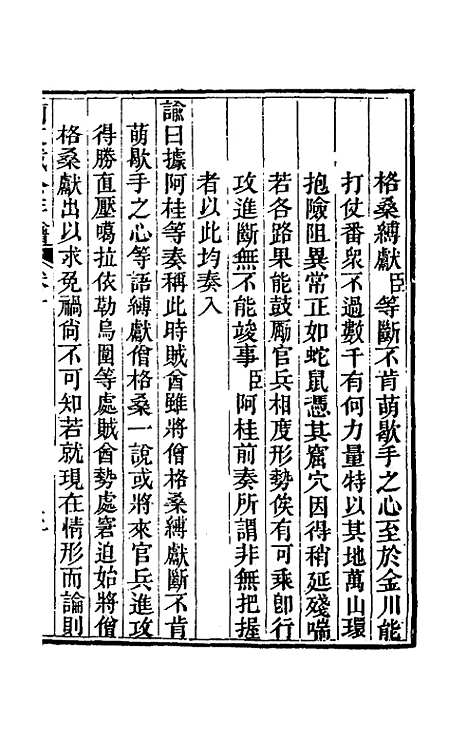 格桑縛獻臣等斷不肯萌歇手之心至於金川能
打仗番衆不過數千有何力量特以其地萬山環
抱險阻異常正如蛇鼠憑其窟穴因得稍延殘喘
若各路果能鼓勵官兵相度形勢俟有可乘即行
攻進斷無不能竣事臣阿桂前奏所謂非無把握
者以此均奏入
諭曰據阿桂等奏稱此時賊酋雖將僧格桑縛獻斷不肯
萌歇手之心等語縛獻僧格桑一說或將來官兵進攻
得勝直壓噶拉依勒烏圍等處賊酋勢處窘迫始將僧
格桑獻出以求免禍尙不可知若就現在情形而論則